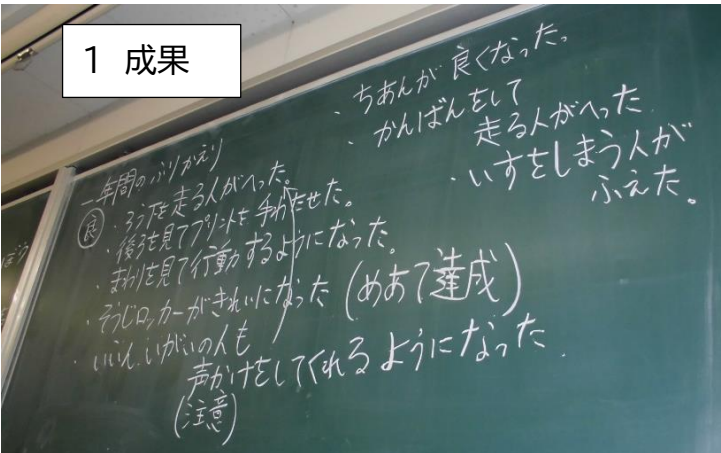 1 成果
一年間のふりかえり
良 ・ろう下を走る人がへった。
・後ろを見てプリントを手わたせた。
・まわりを見て行動するようになった。
・そうじロッカーがきれいになった(めあて達成)
・いいんいがいの人も
声かけをしてくれるようになった
(注意)
・ちあんが良くなった。
・かんばんをして
走る人がへった
・いすをしまう人が
ふえた。